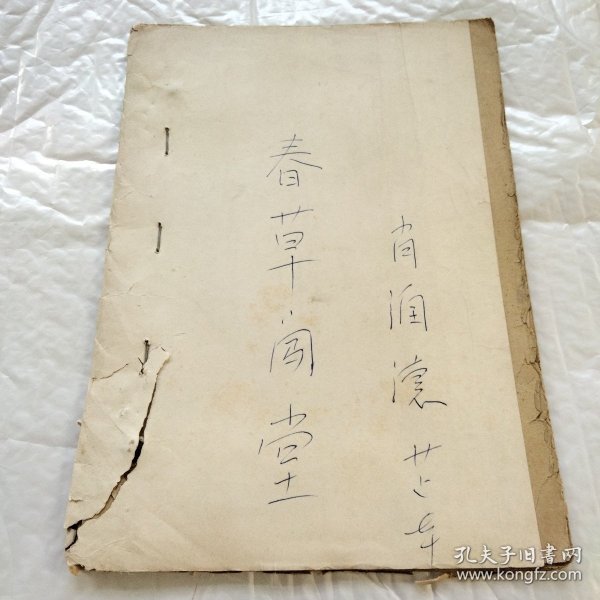 春草闯堂
肖润德艺本
孔夫子旧書网
www.kongfz.com